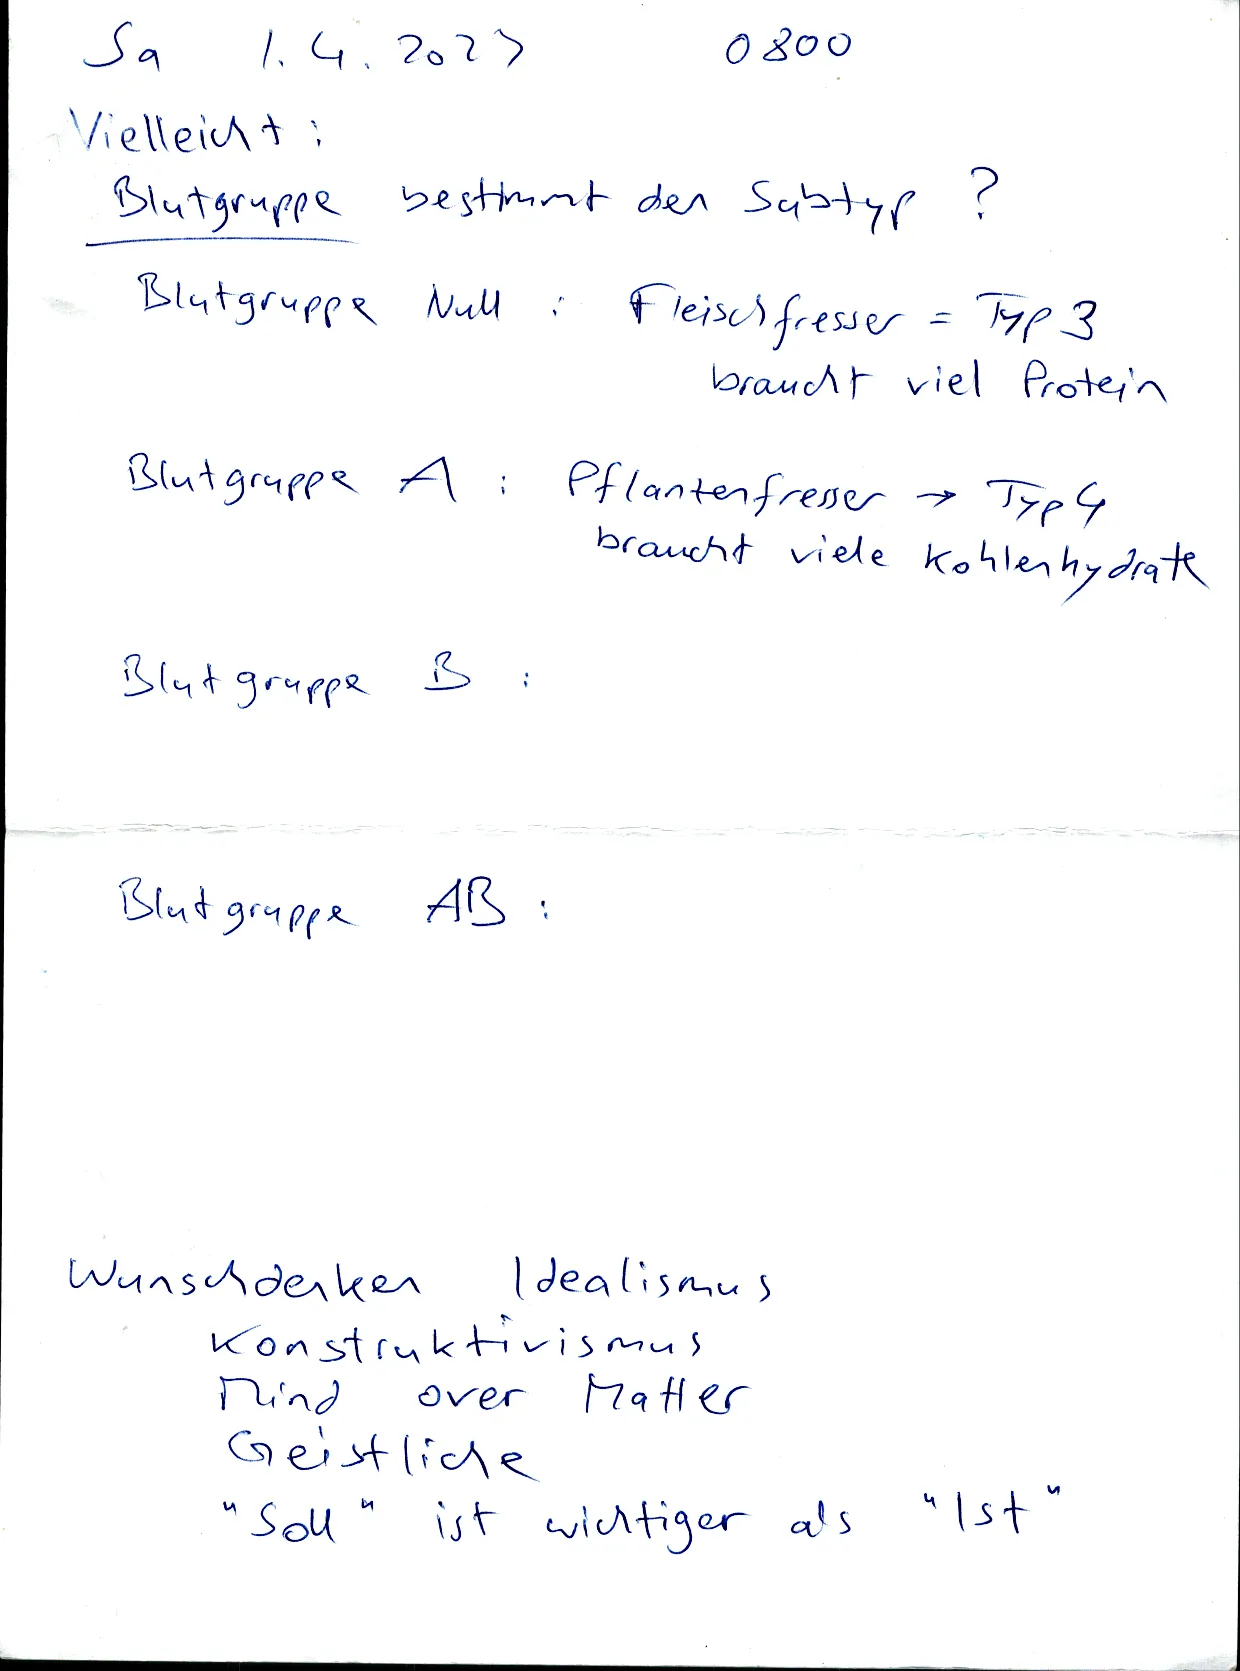 Sa 1.4.2023 0800
Vielleicht:
Blutgruppe bestimmt den Subtyp ?
Blutgruppe Null : Fleischfresser = Typ 3
braucht viel Protein
Blutgruppe A : Pflanzenfresser → Typ 4
braucht viele Kohlenhydrate
Blutgruppe B :
Blutgruppe AB :
Wunschdenken Idealismus
Konstruktivismus
Mind over Matter
Geistliche
"Soll" ist wichtiger als "Ist"